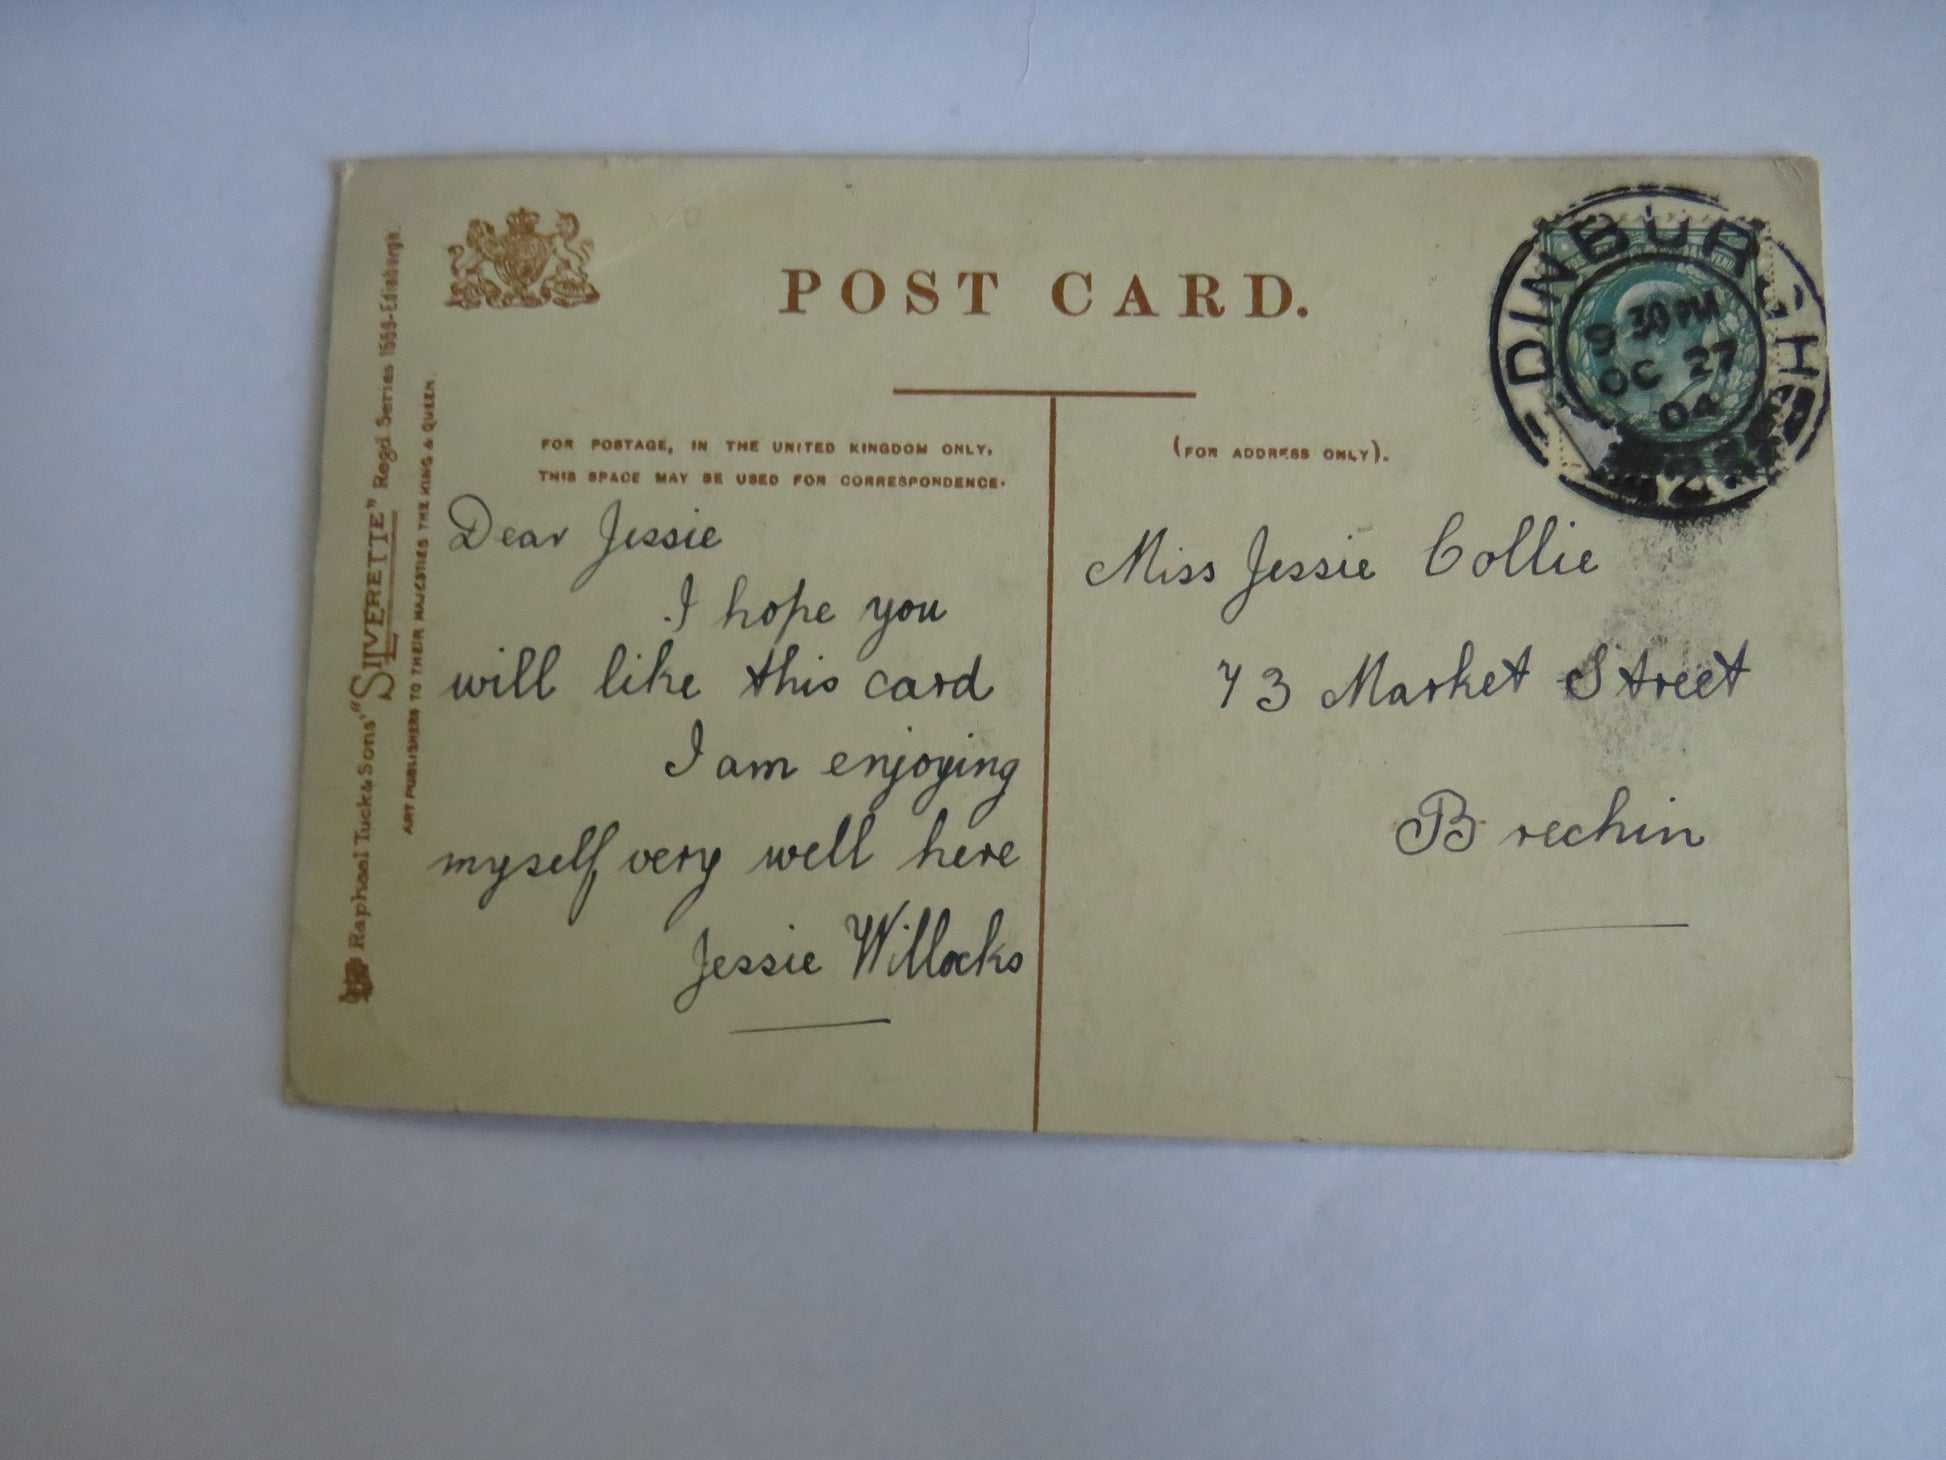 POST CARD.
Raphael Tuck & Sons' "SILVERETTE" Regd Series 1559-Edinburgh.
ART PUBLISHERS TO THEIR MAJESTIES THE KING & QUEEN.
FOR POSTAGE, IN THE UNITED KINGDOM ONLY,
THIS SPACE MAY BE USED FOR CORRESPONDENCE.
Dear Jessie
I hope you
will like this card
I am enjoying
myself very well here
Jessie Willocks
(FOR ADDRESS ONLY).
Miss Jessie Collie
73 Market Street
Brechin
EDINBURGH
9 30 PM
OC 27
04